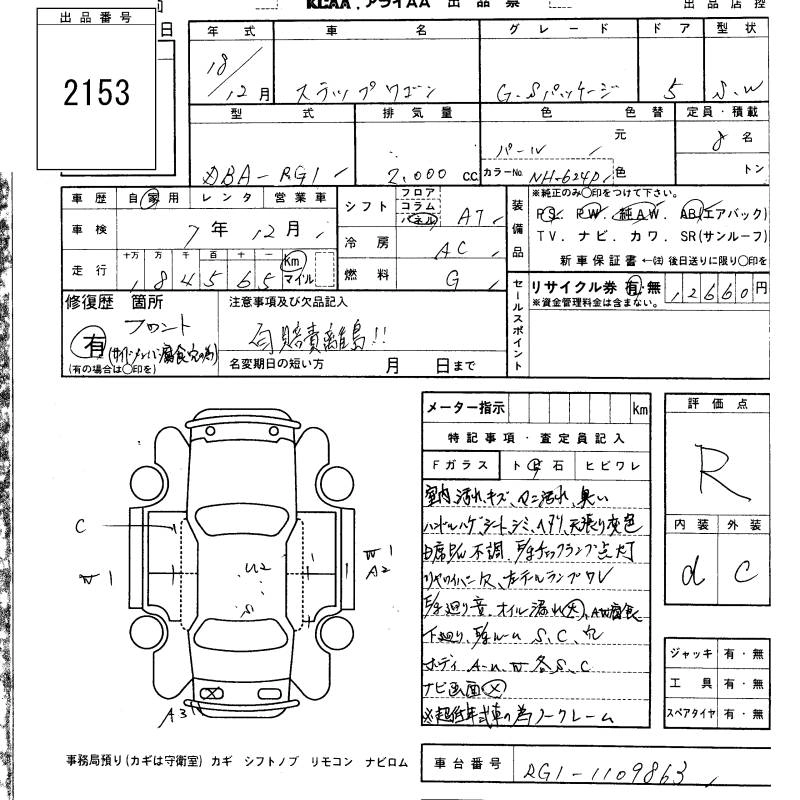 KCAA．アライAA 出品票
出品店控
出品番号
2153
日
年式 車名 グレード ドア 型状
18/12月 ステップワゴン G-Sパッケージ 5 S.W
型式 排気量 色 色替 定員・積載
DBA-RG1 2,000 cc パール 元色 8名
カラーNo. NH-624P トン
車歴 自家用 レンタ 営業車
車検 7年12月
走行 十万 万 千 百 十 一 Km マイル
184565
シフト フロア コラム パネル AT
冷房 AC
燃料 G
装備品 ※純正のみ○印をつけて下さい。
PS. PW. 純AW. AB(エアバック)
TV. ナビ. カワ. SR(サンルーフ)
新車保証書 ←㊟ 後日送りに限り○印を
セールスポイント
リサイクル券 有・無 12660円
※資金管理料金は含まない。
修復歴 箇所
有 フロント
(サイドメンバー腐食穴の為)
(有の場合は○印を)
注意事項及び欠品記入
自賠責離島!!
名変期日の短い方 月 日まで
C
W1
U2
S
W1
A2
A3
メーター指示 km
特記事項・査定員記入
Fガラス ト飛石 ヒビワレ
室内汚れ、キズ、マニ汚れ、臭い
ハンドルハゲ、シートシミ、ヘタリ、天張り変色
不調、チェックランプ点灯
リヤワイパー欠、左テールランプワレ
廻り音、オイル漏れ大、AW腐食
下廻り、ルーム S、C、穴
ボディ A-U、W 各S、C
ナビ画面×
※超低年式車の為ノークレーム
評価点
R
内装 外装
d C
ジャッキ 有・無
工具 有・無
スペアタイヤ 有・無
事務局預り(カギは守衛室) カギ シフトノブ リモコン ナビロム
車台番号 RG1-1109863